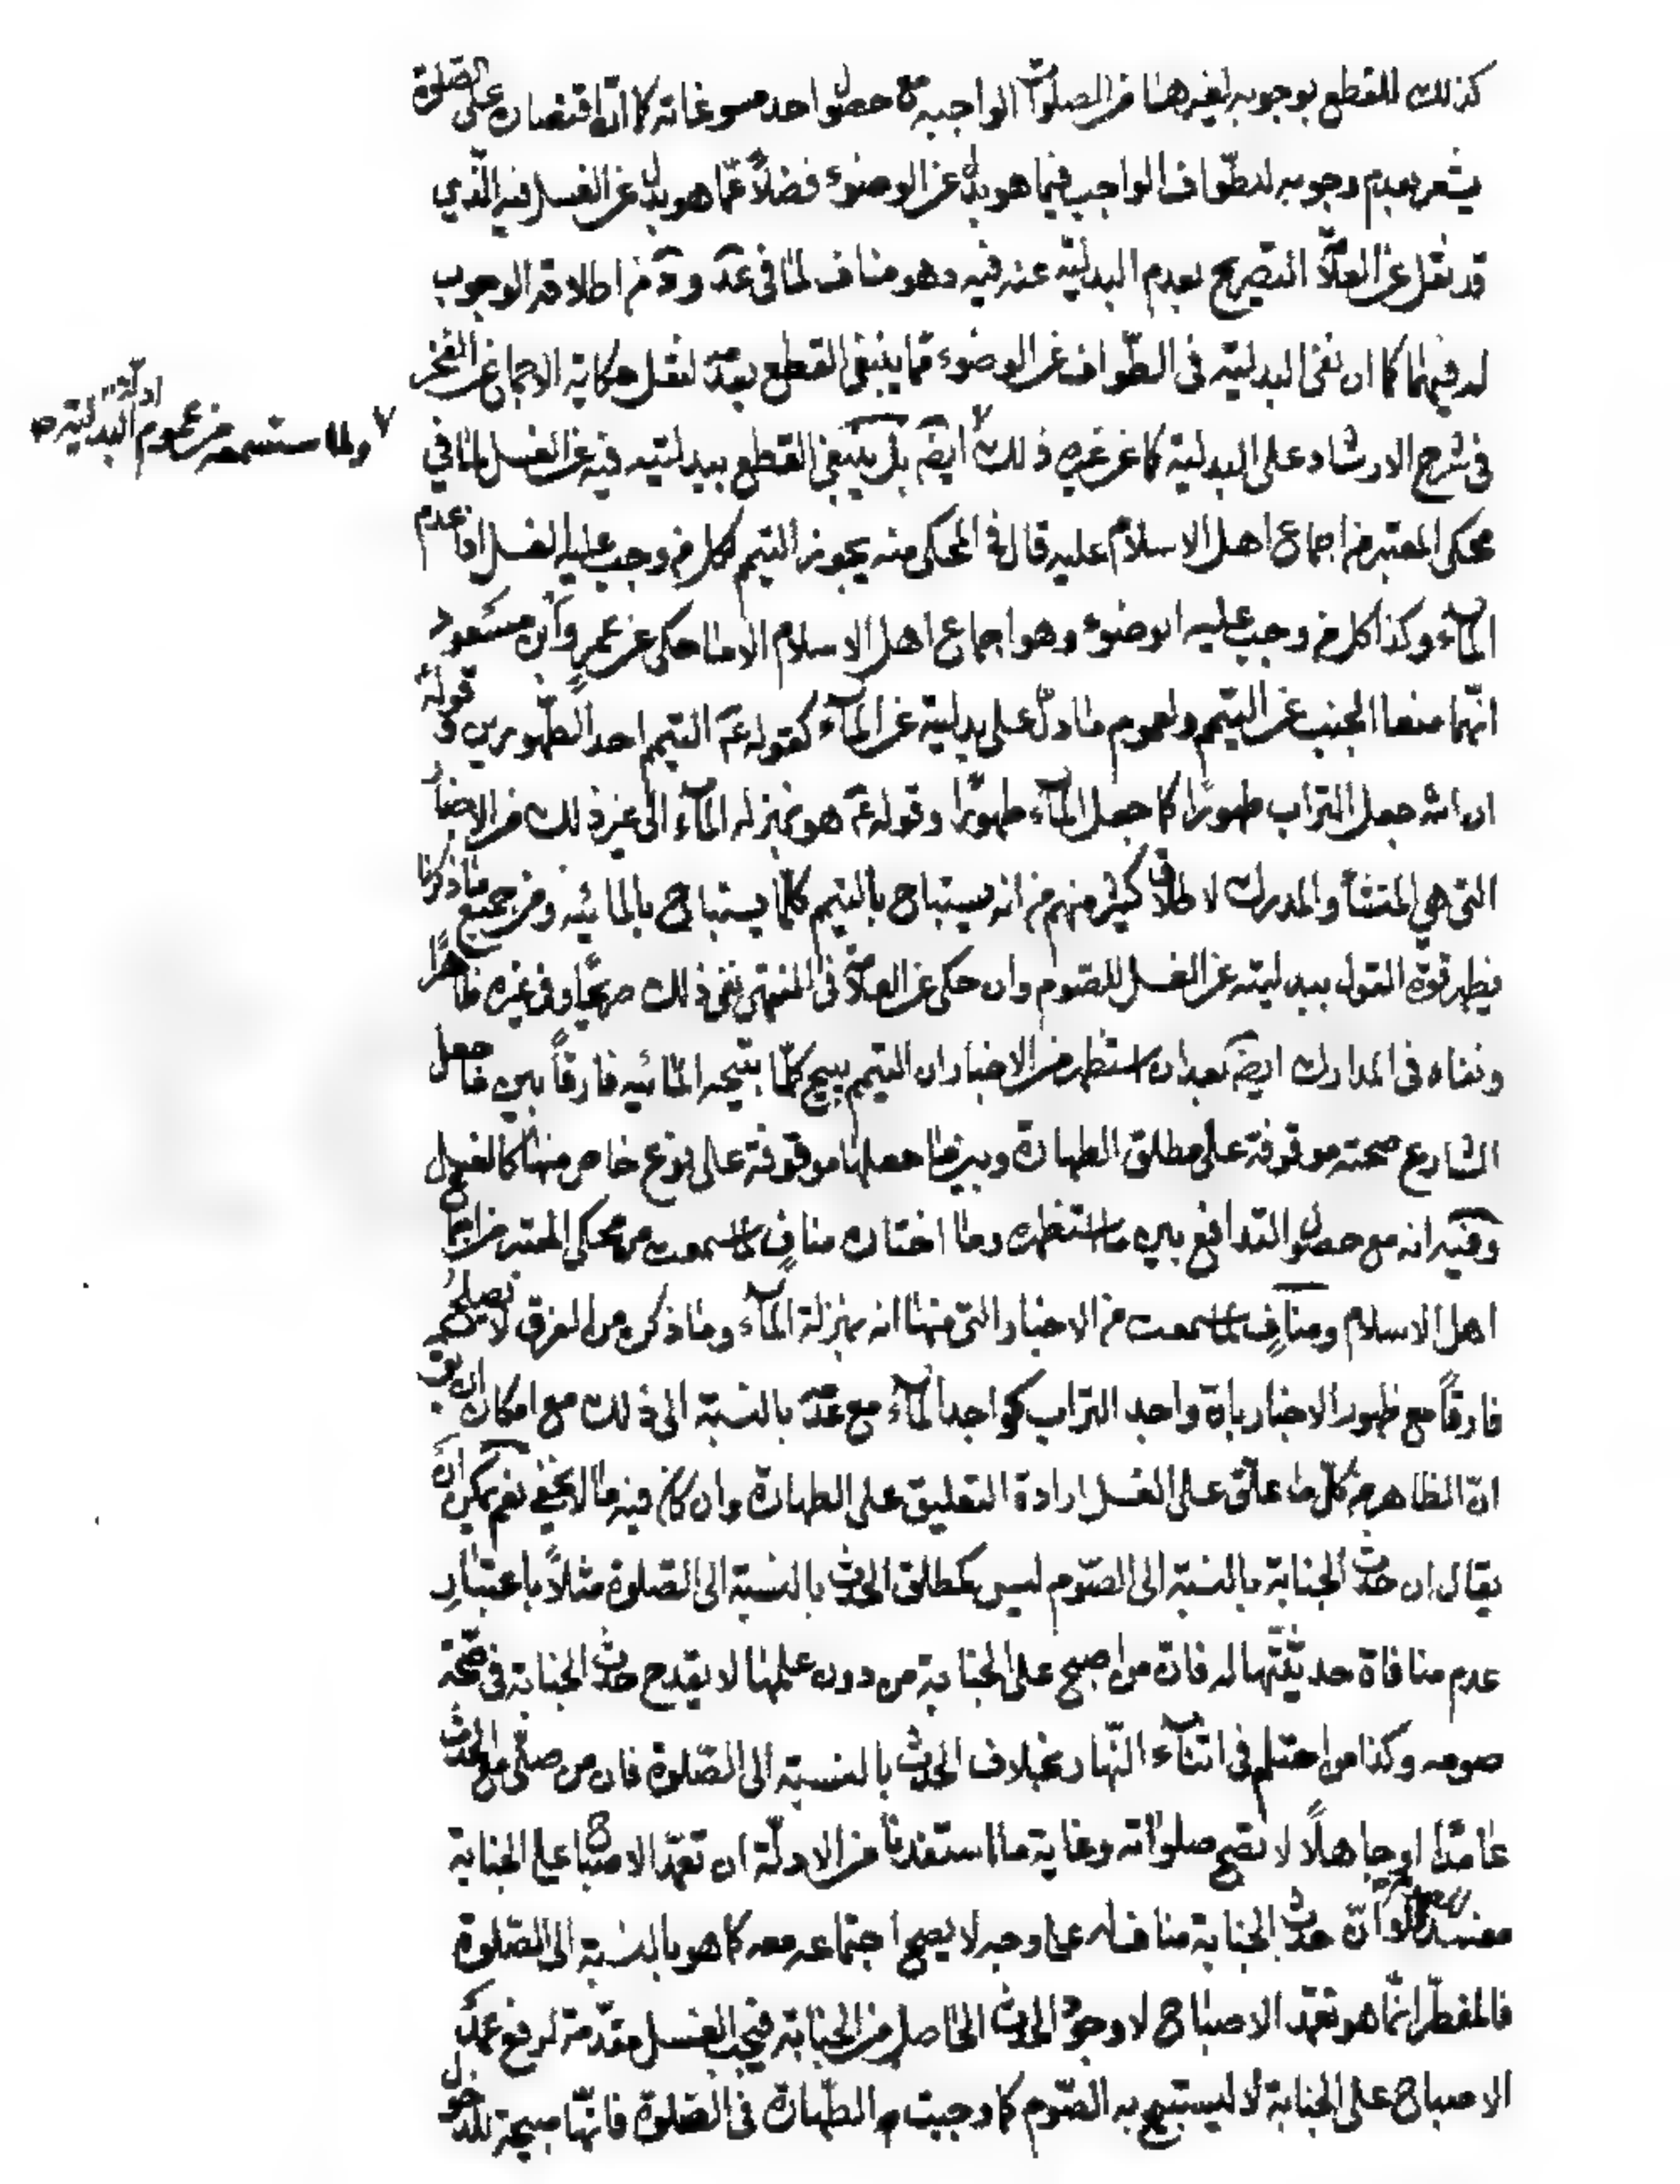 كذلك للقطع بوجوبه لغيرها من الصلوات الواجبة مع حصول احد مسوغاته كما ان اقتصاره على الصلوة
يشعر بعدم وجوبه للطواف الواجب فيما هو بدل عن الوضوء فضلاً عمّا هو بدل عن الغسل فيه الذي
قد نقل عن العلّا التصريح بعدم البدلية عنه فيه وهو مناف لما في عد و من اطلاقه الوجوب
له فيهما كما ان نفى البدلية في الطّواف عن الوضوء ممّا ينبغي القطع بعدمه لنقل حكاية الاجماع عن الفخر
في شرح الارشاد على البدلية كما عن غيره ذلك ايضَ بل ينبغي القطع ببدليته فيه عن الغسل لما في
ولما ستسمعه من عموم ادلّة البدلية صح
محكى المعتبر من اجماع اهل الاسلام عليه قال في المحكى منه يجوز التيمم لكل من وجب عليه الغسل اذا عدم
الماء وكذا كل من وجب عليه الوضوء وهو اجماع اهل الاسلام الا ما حكى عن عمر وابن مسعود
انّهما منعا الجنب عن التيمم ولعموم ما دلّ على بدلية عن المآء كقوله عَ التيمم احد الطّهورين و قوله
ان الله جعل التراب طهورًا كما جعل المآء طهورًا وقوله عَ هو بمنزلة المآء الى غير ذلك من الاخبار
التي هي المنشأ والمدرك لاطلاق كثير منهم من انه يستباح بالتيمم كلما يستباح بالمائيه ومن جميع ما ذكرنا
فيظهر قوة القول ببدليته عن الغسل للصّوم وان حكى عن العلّا في المنتهى نفي ذلك صريحًا وفي غيره ظاهرًا
ونفاه في المدارك ايضَ بعد ان استظهر من الاخبار ان التيمم يبيح كلّما تبيحه المائيه فارقاً بين ما جعل
الشارع صحته موقوفة على مطلق الطهارة وبين ما جعلها موقوفة على نوع خاص منها كالغسل
وفيه انه مع حصول التدافع بين ما استظهره وما اختاره منافٍ لما سمعت من محكى المعتبر من اجماع
اهل الاسلام ومنافٍ لما سمعت من الاخبار التي منها انه بمنزلة المآء وما ذكر من الفرق لا يصلح
فارقاً مع ظهور الاخبار بان واجد التراب كواجد المآء مع عدمه بالنسبة الى ذلك مع امكان ان يق
انّ الظاهر من كل ما علّق على الغسل ارادة التعليق على الطهارة وان كان فيه ما لا يخفى نعم يمكن ان
يقال ان حدث الجنابة بالنسبة الى الصّوم ليس كمطلق الحدث بالنسبة الى الصّلوة مثلاً باعتبار
عدم منافاة حدثيّتها له فان من اصبح على الجنابة من دون علمها لا يقدح حدث الجنابة في صحّة
صومه وكذا من احتلم في اثناء النّهار بخلاف الحدث بالنسبة الى الصّلوة فان من صلّى مع الحدث
عامدًا او جاهلًا لا تصح صلواته وغاية ما استفدنا من الادلّة ان تعمّد الاصباح على الجنابة
مفسد للصوم لا انّ حدث الجنابة مناف له على وجه لا يصح اجتماعه معه كما هو بالنسبة الى الصّلوة
فالمفطّر انّما هو تعمّد الاصباح لا وجود الحدث الحاصل من الجنابة فيجب الغسل مقدّمة لرفع عمد
الاصباح على الجنابة لا ليستبيح به الصّوم كما وجبت الطّهارة في الصّلوة فانّها مبيحة للدخول